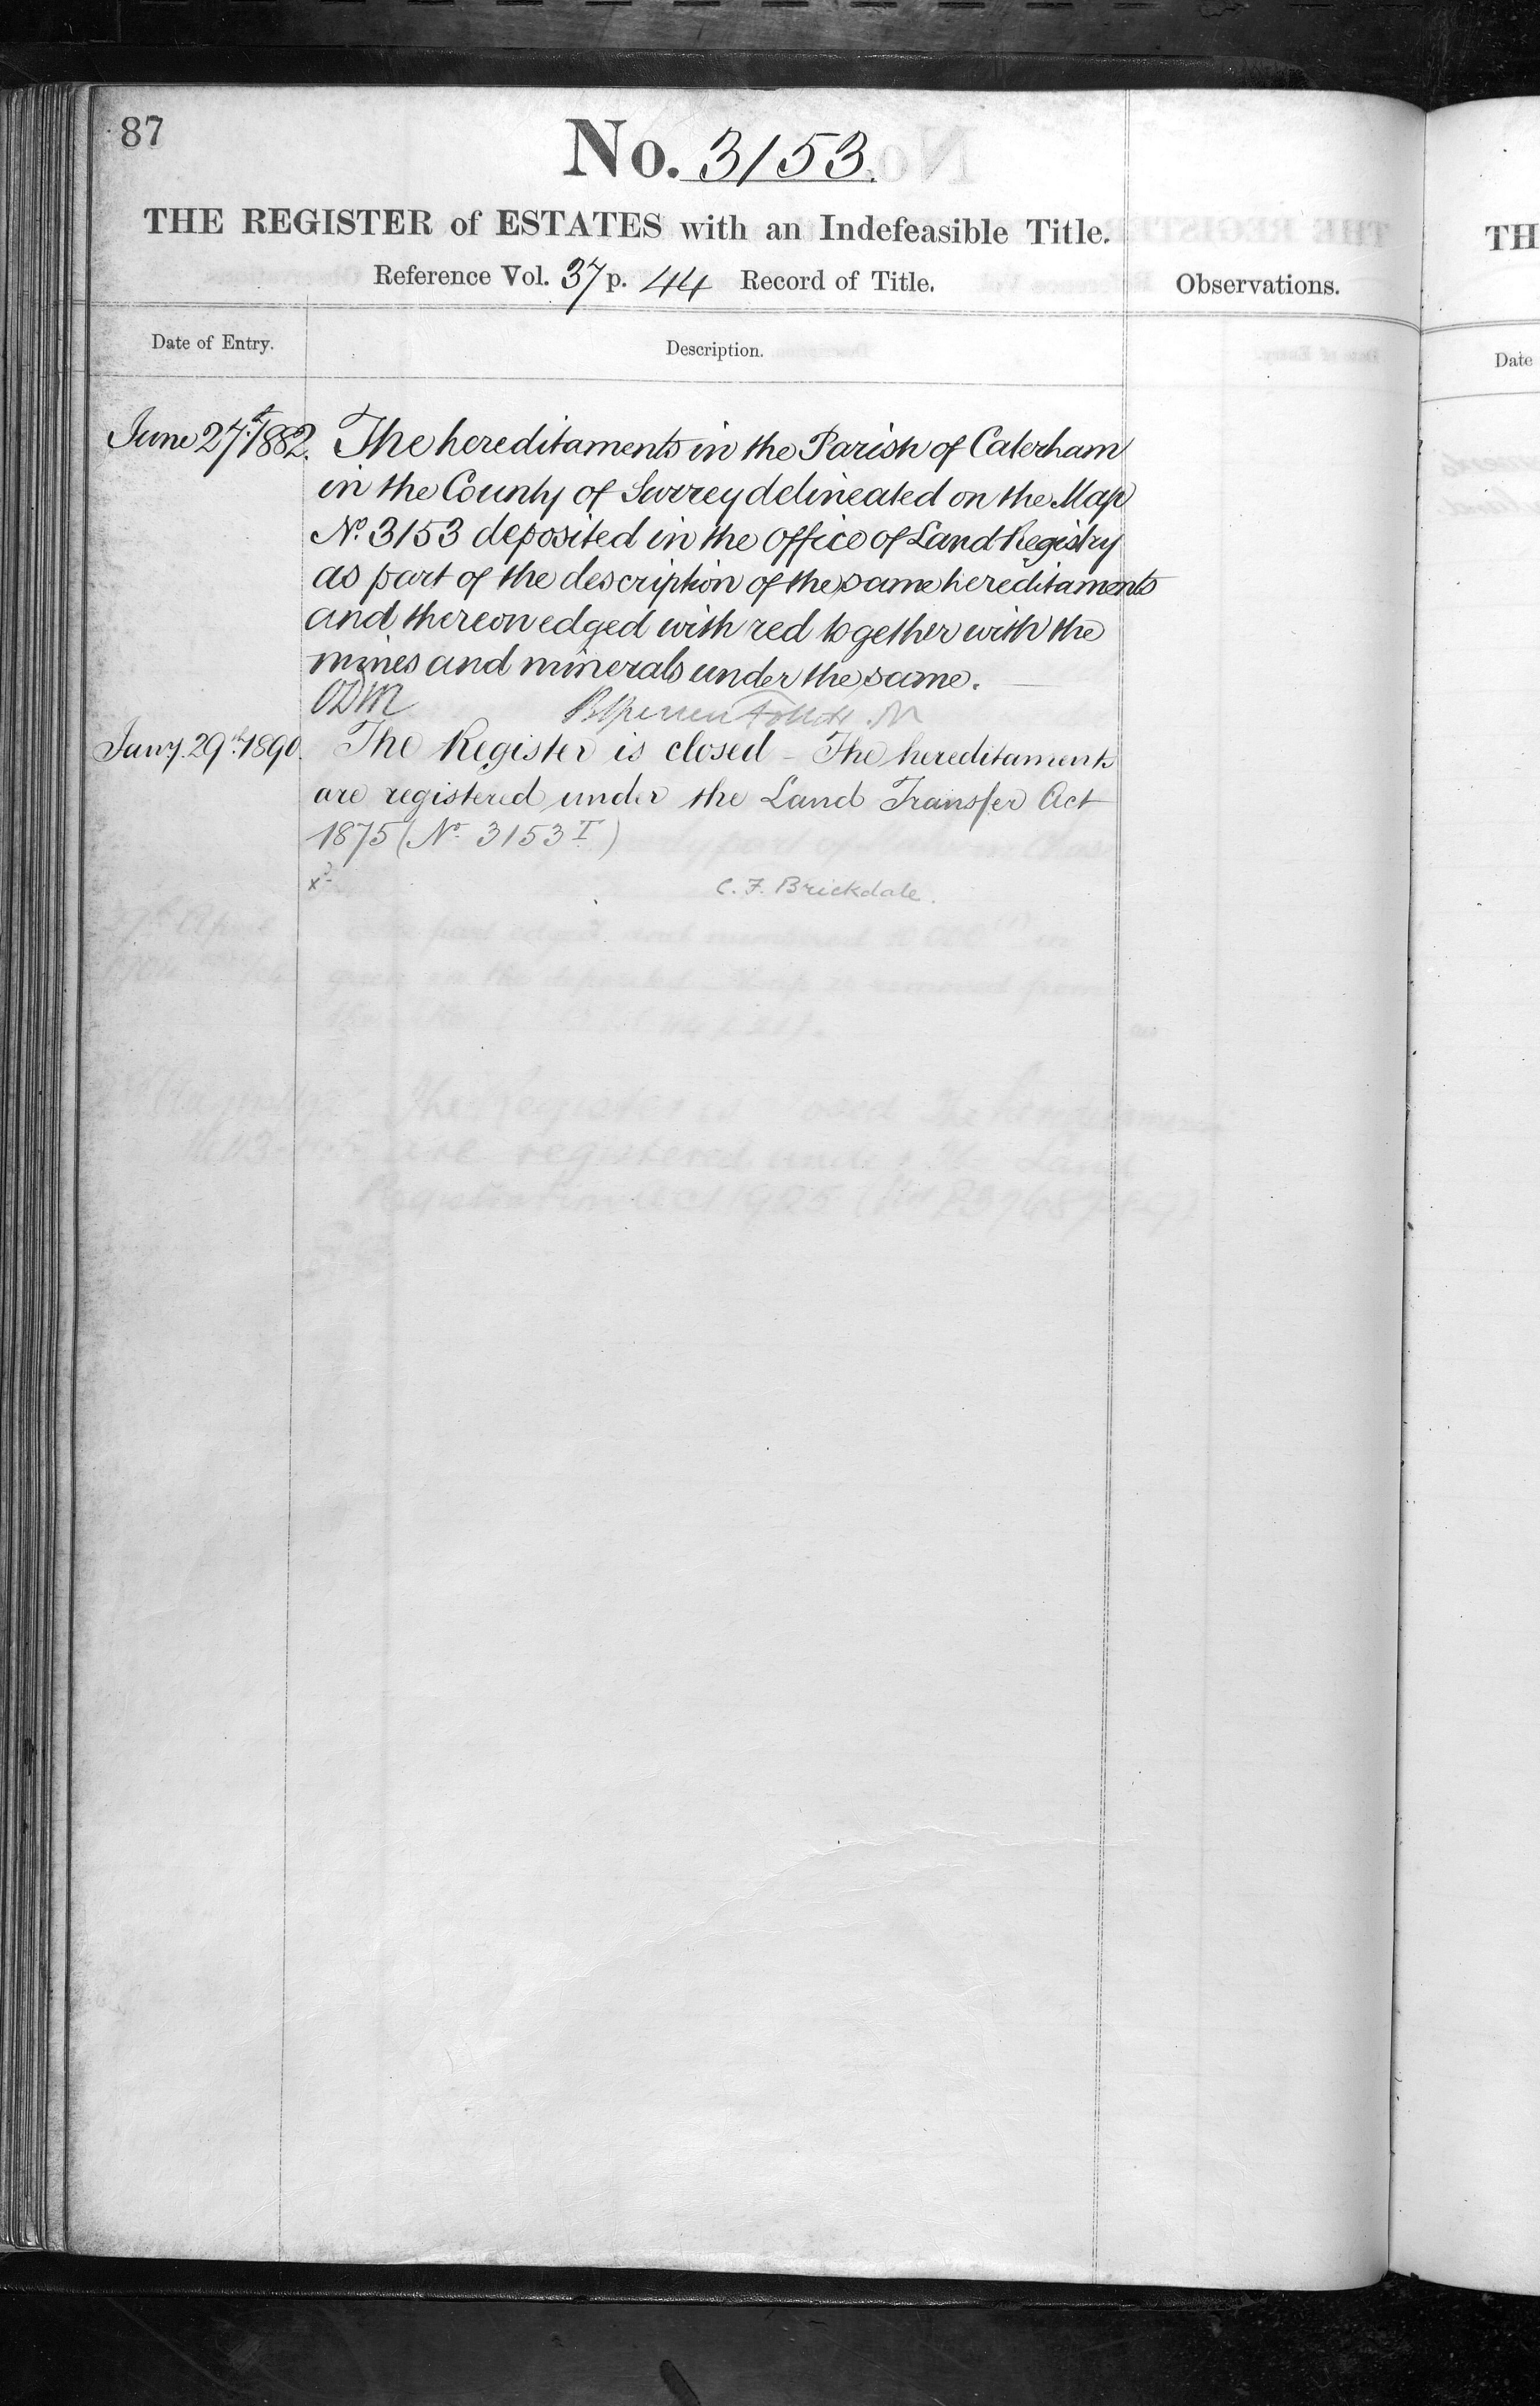 87
No. 3153.
THE REGISTER of ESTATES with an Indefeasible Title.
Reference Vol. 37 p. 44 Record of Title.
Observations.
Date of Entry.
Description.
June 27th 1882. The hereditaments in the Parish of Caterham
in the County of Surrey delineated on the Map
No. 3153 deposited in the Office of Land Registry
as part of the description of the same hereditaments
and thereon edged with red together with the
mines and minerals under the same.
ODM
Jany. 29th 1890. The Register is closed - The hereditaments
are registered under the Land Transfer Act
1875 (No. 3153 I)
C. F. Brickdale.
TH
Date